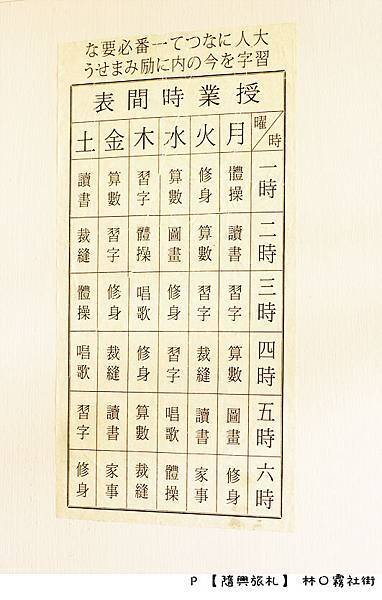 大人になつて一番必要な
習字を今の内に励みませう
授業時間表
曜／時 月 火 水 木 金 土
一時 體操 修身 算數 習字 算數 讀書
二時 讀書 算數 圖畫 體操 習字 裁縫
三時 習字 習字 修身 唱歌 修身 體操
四時 算數 裁縫 習字 修身 裁縫 唱歌
五時 圖畫 讀書 唱歌 算數 讀書 習字
六時 修身 家事 體操 裁縫 家事 修身
P 【隨興旅札】 林口霧社街